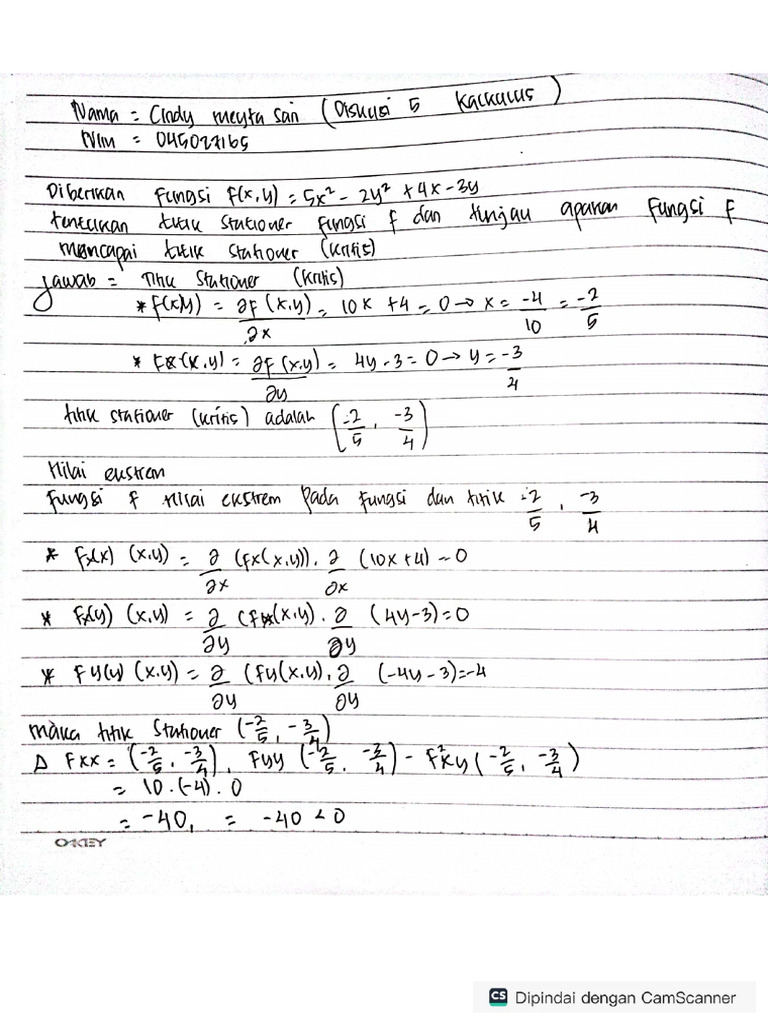 Nama = Cindy meyta sari (Diskusi 5 Kalkulus)
Nim = 045027165
Diberikan fungsi f(x,y) = 5x² - 2y² + 4x - 3y
tentukan titik stationer fungsi f dan tinjau apakah fungsi f
mencapai titik stationer (kritis)
Jawab = Titik stationer (kritis)
* f(x,y) = ∂f (x,y) / ∂x = 10x + 4 = 0 → x = -4/10 = -2/5
* Fx(x,y) = ∂f (x,y) / ∂y = 4y - 3 = 0 → y = -3/4
titik stationer (kritis) adalah (-2/5, -3/4)
Nilai ekstrem
fungsi f Nilai ekstrem pada fungsi dan titik -2/5, -3/4
* Fx(x) (x,y) = ∂/∂x (fx(x,y)). ∂/∂x (10x + 4) = 0
* Fx(y) (x,y) = ∂/∂y (fx(x,y). ∂/∂y (4y - 3) = 0
* Fy(y) (x,y) = ∂/∂y (fy(x,y), ∂/∂y (-4y - 3) = -4
maka titik stationer (-2/5, -3/4)
D Fxx = (-2/5, -3/4), Fyy (-2/5, -3/4) - F²xy (-2/5, -3/4)
= 10 . (-4) . 0
= -40, = -40 < 0
OAKLEY
CS Dipindai dengan CamScanner